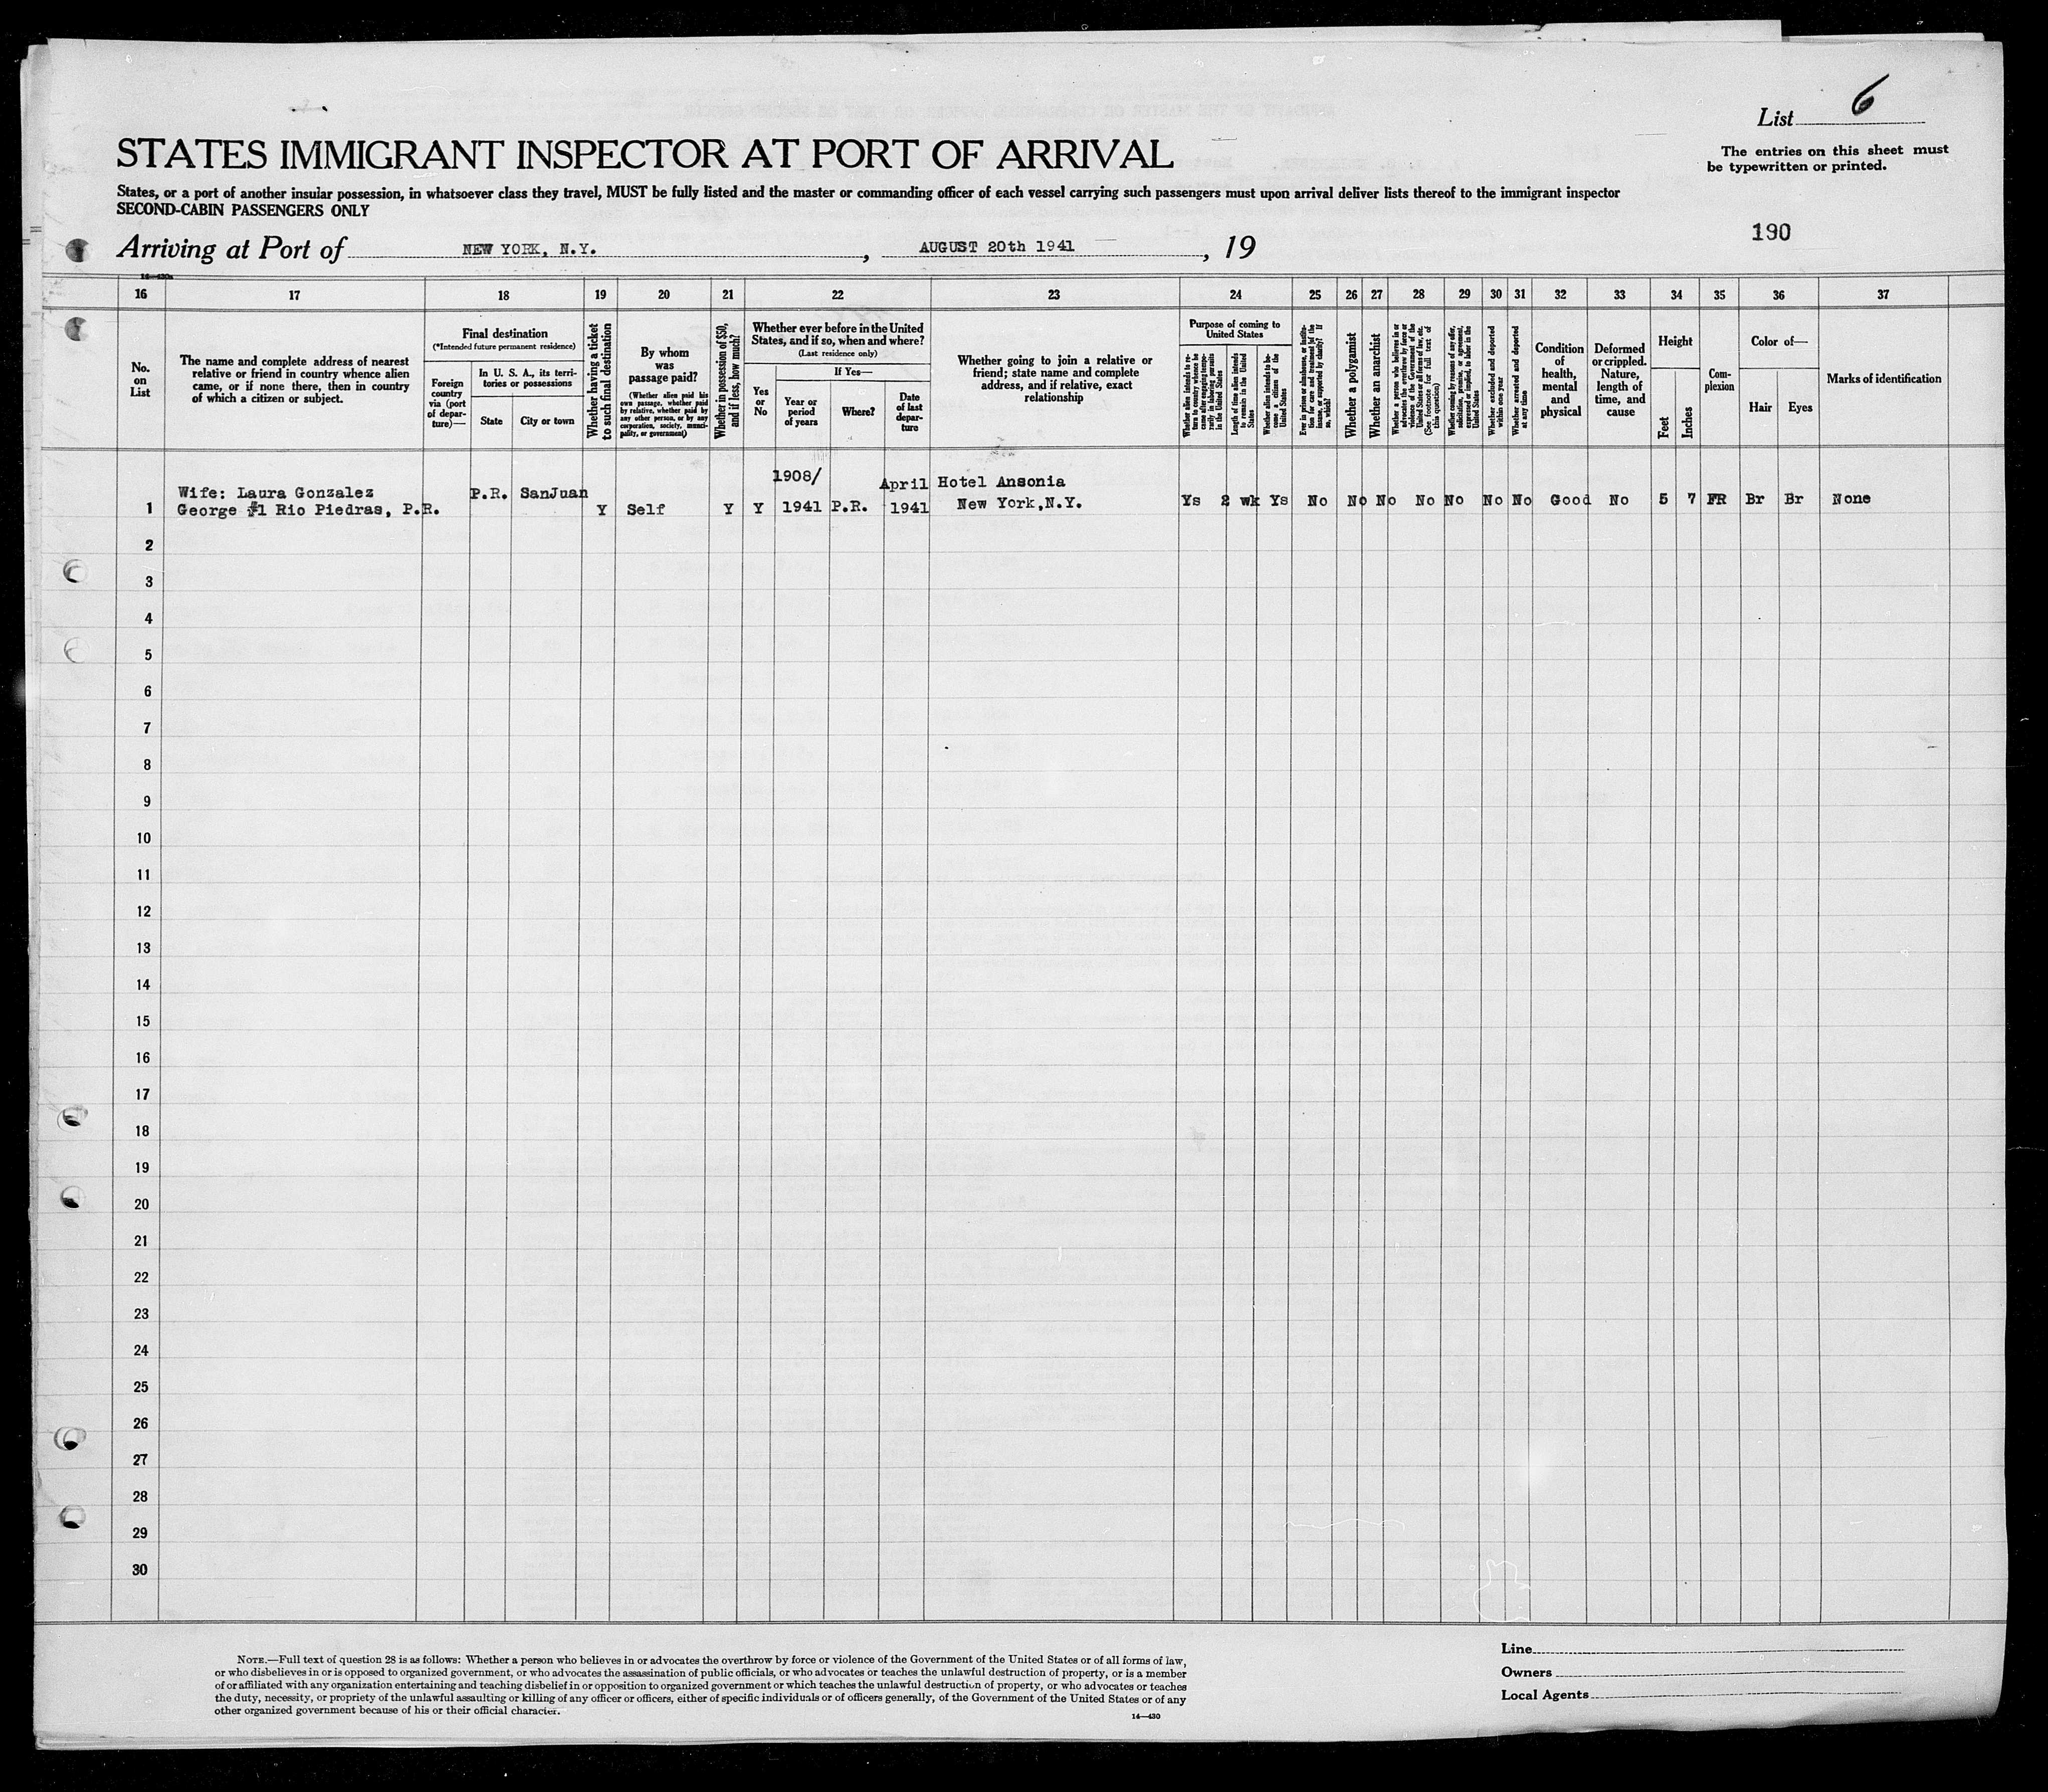 List 6
STATES IMMIGRANT INSPECTOR AT PORT OF ARRIVAL
The entries on this sheet must
be typewritten or printed.
States, or a port of another insular possession, in whatsoever class they travel, MUST be fully listed and the master or commanding officer of each vessel carrying such passengers must upon arrival deliver lists thereof to the immigrant inspector
SECOND-CABIN PASSENGERS ONLY
190
Arriving at Port of NEW YORK, N.Y. , AUGUST 20th 1941 , 19
16 17 18 19 20 21 22 23 24 25 26 27 28 29 30 31 32 33 34 35 36 37
No. on List
The name and complete address of nearest relative or friend in country whence alien came, or if none there, then in country of which a citizen or subject.
Final destination
(*Intended future permanent residence)
Foreign country via (port of departure)—
In U. S. A., its territories or possessions
State
City or town
Whether having a ticket to such final destination
By whom was passage paid?
(Whether alien paid his own passage, whether paid by relative, whether paid by any other person, or by any corporation, society, municipality, or government)
Whether in possession of $50, and if less, how much?
Whether ever before in the United States, and if so, when and where?
(Last residence only)
Yes or No
If Yes—
Year or period of years
Where?
Date of last departure
Whether going to join a relative or friend; state name and complete address, and if relative, exact relationship
Purpose of coming to United States
Whether alien intends to return to country whence he came after engaging temporarily in laboring pursuits in the United States
Length of time alien intends to remain in the United States
Whether alien intends to become a citizen of the United States
Ever in prison or almshouse, or institution for care and treatment of the insane, or supported by charity? If so, which?
Whether a polygamist
Whether an anarchist
Whether a person who believes in or advocates the overthrow by force or violence of the Government of the United States or all forms of law, etc. (See footnote for full text of this question)
Whether coming by reasons of any offer, solicitation, promise, or agreement, expressed or implied, to labor in the United States
Whether excluded and deported within one year
Whether arrested and deported at any time
Condition of health, mental and physical
Deformed or crippled. Nature, length of time, and cause
Height
Feet
Inches
Complexion
Color of—
Hair
Eyes
Marks of identification
1908/
Wife: Laura Gonzalez P.R. SanJuan April Hotel Ansonia
1 George #1 Rio Piedras, P.R. Y Self Y Y 1941 P.R. 1941 New York,N.Y. Ys 2 wk Ys No No No No No No No Good No 5 7 FR Br Br None
2
3
4
5
6
7
8
9
10
11
12
13
14
15
16
17
18
19
20
21
22
23
24
25
26
27
28
29
30
NOTE.—Full text of question 28 is as follows: Whether a person who believes in or advocates the overthrow by force or violence of the Government of the United States or of all forms of law,
or who disbelieves in or is opposed to organized government, or who advocates the assassination of public officials, or who advocates or teaches the unlawful destruction of property, or is a member
of or affiliated with any organization entertaining and teaching disbelief in or opposition to organized government or which teaches the unlawful destruction of property, or who advocates or teaches
the duty, necessity, or propriety of the unlawful assaulting or killing of any officer or officers, either of specific individuals or of officers generally, of the Government of the United States or of any
other organized government because of his or their official character.
14—430
Line
Owners
Local Agents